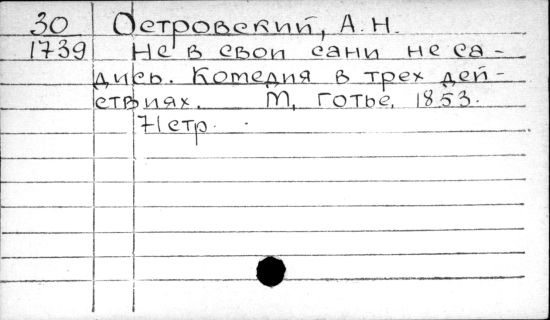 30 Островский, А.Н.
1739 Не в свои сани не са-
дись. Комедия в трех дей-
ствиях. М, Готье, 1853.
71стр.